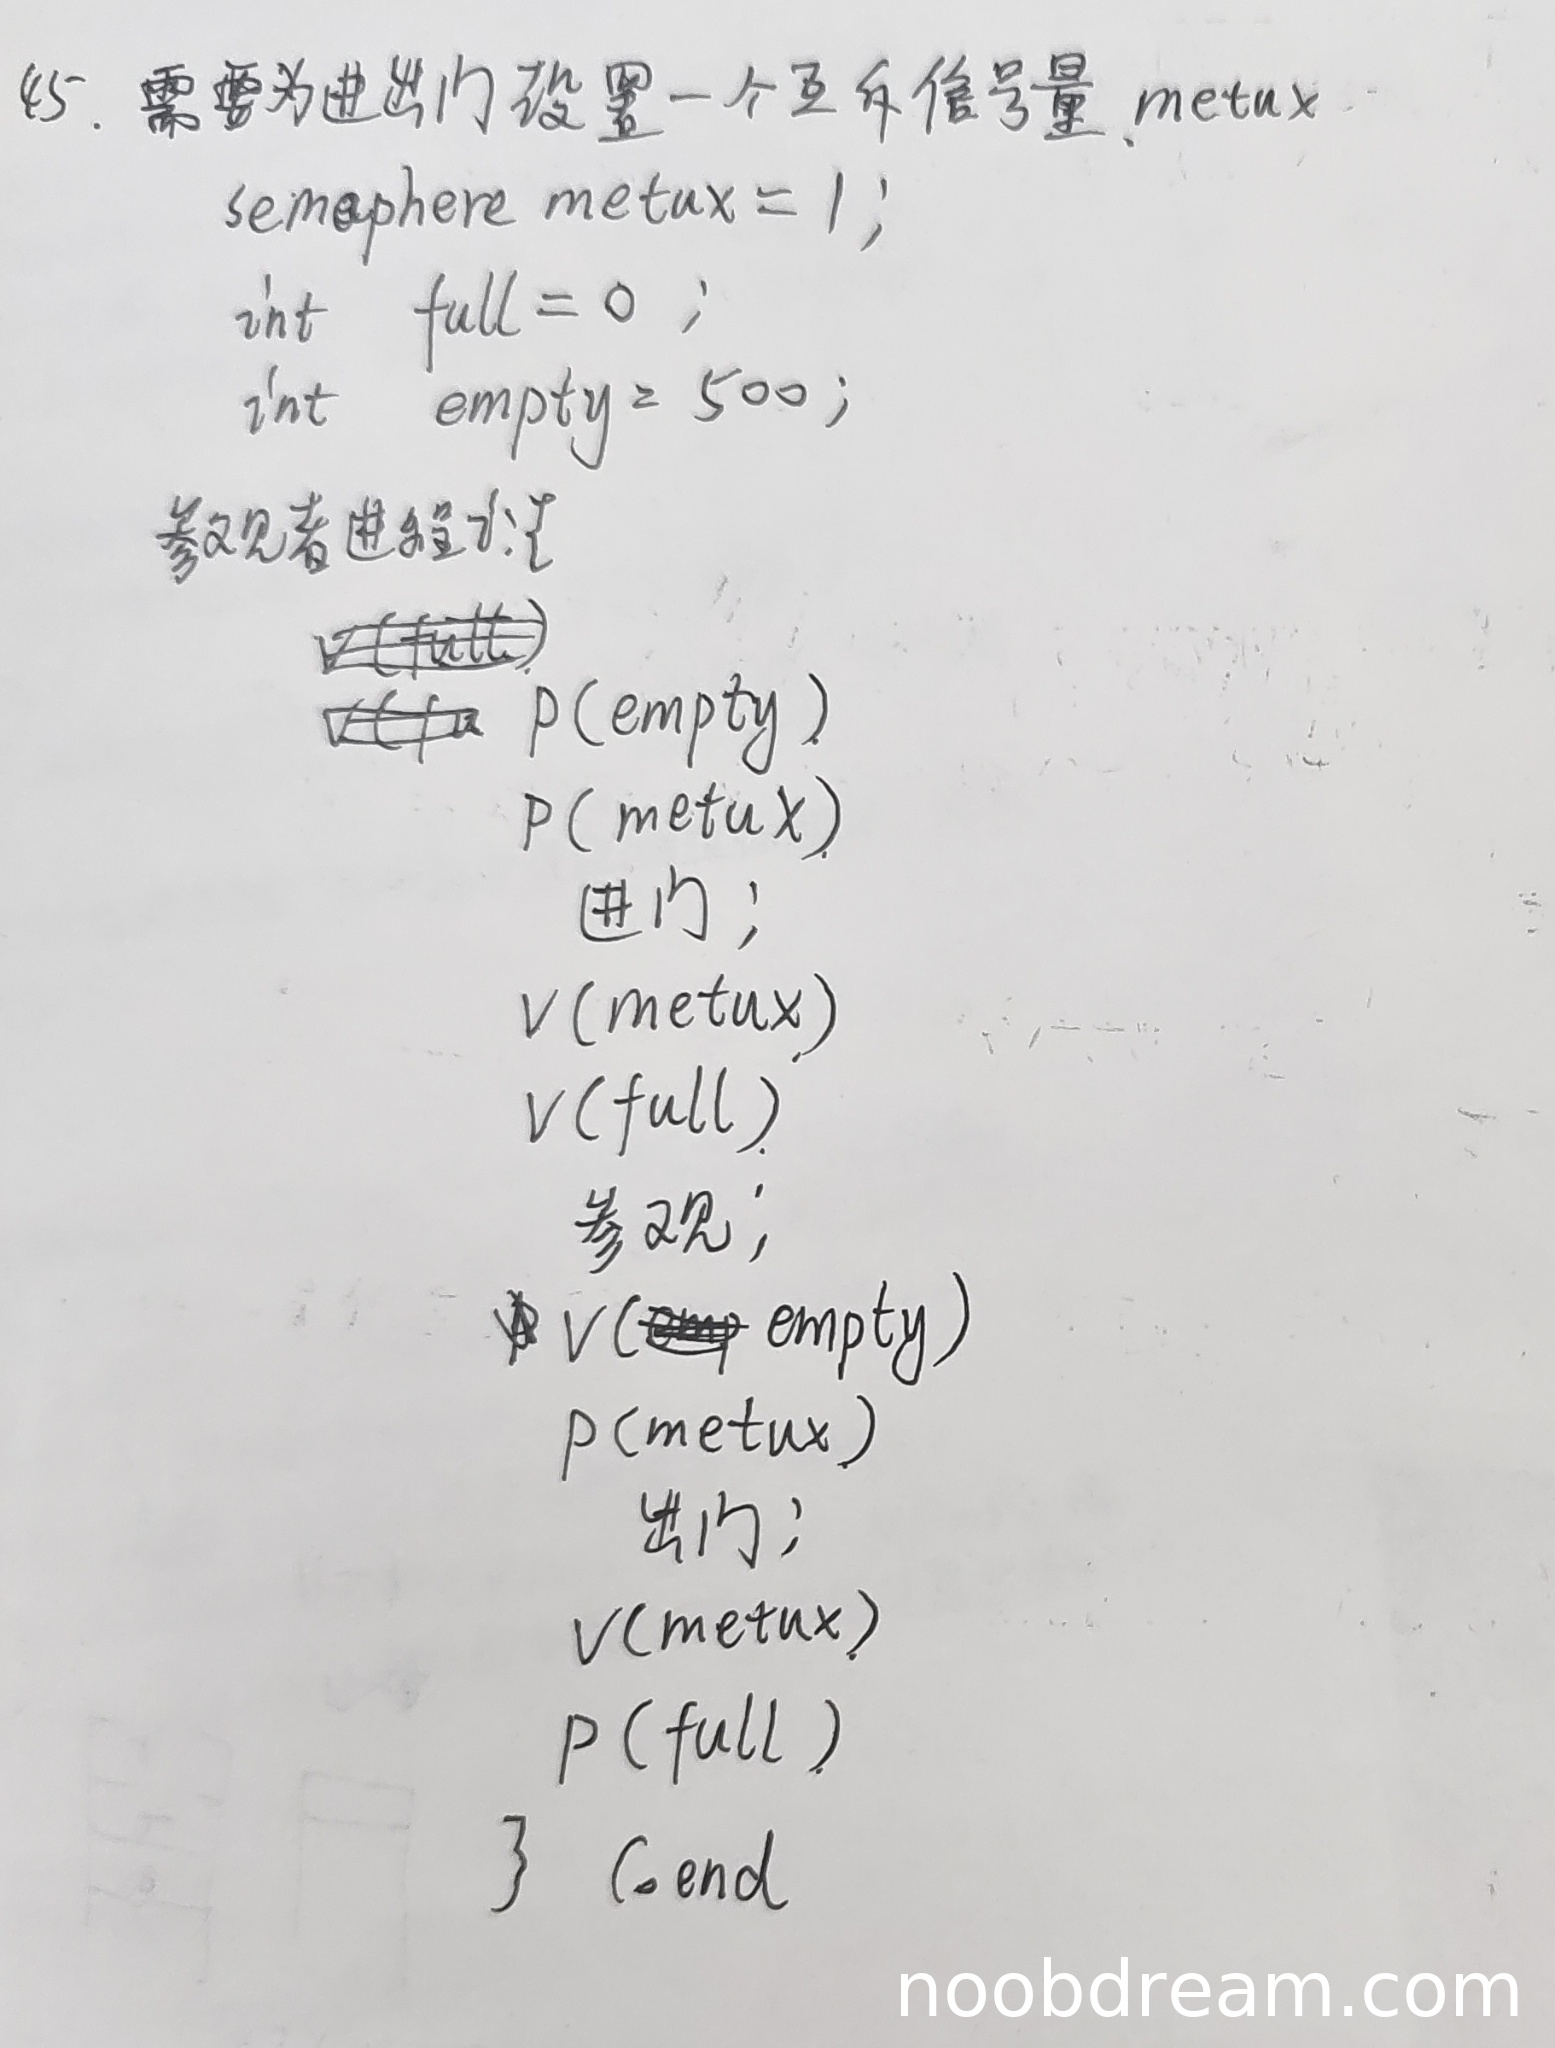 45. 需要为进出门设置一个互斥信号量 metux
semaphere metux = 1;
int full = 0;
int empty = 500;
参观者进程i:{
V(full)
V(fu P(empty)
P(metux)
进门;
V(metux)
V(full)
参观;
V(emp empty)
P(metux)
出门;
V(metux)
P(full)
} Coend
noobdream.com